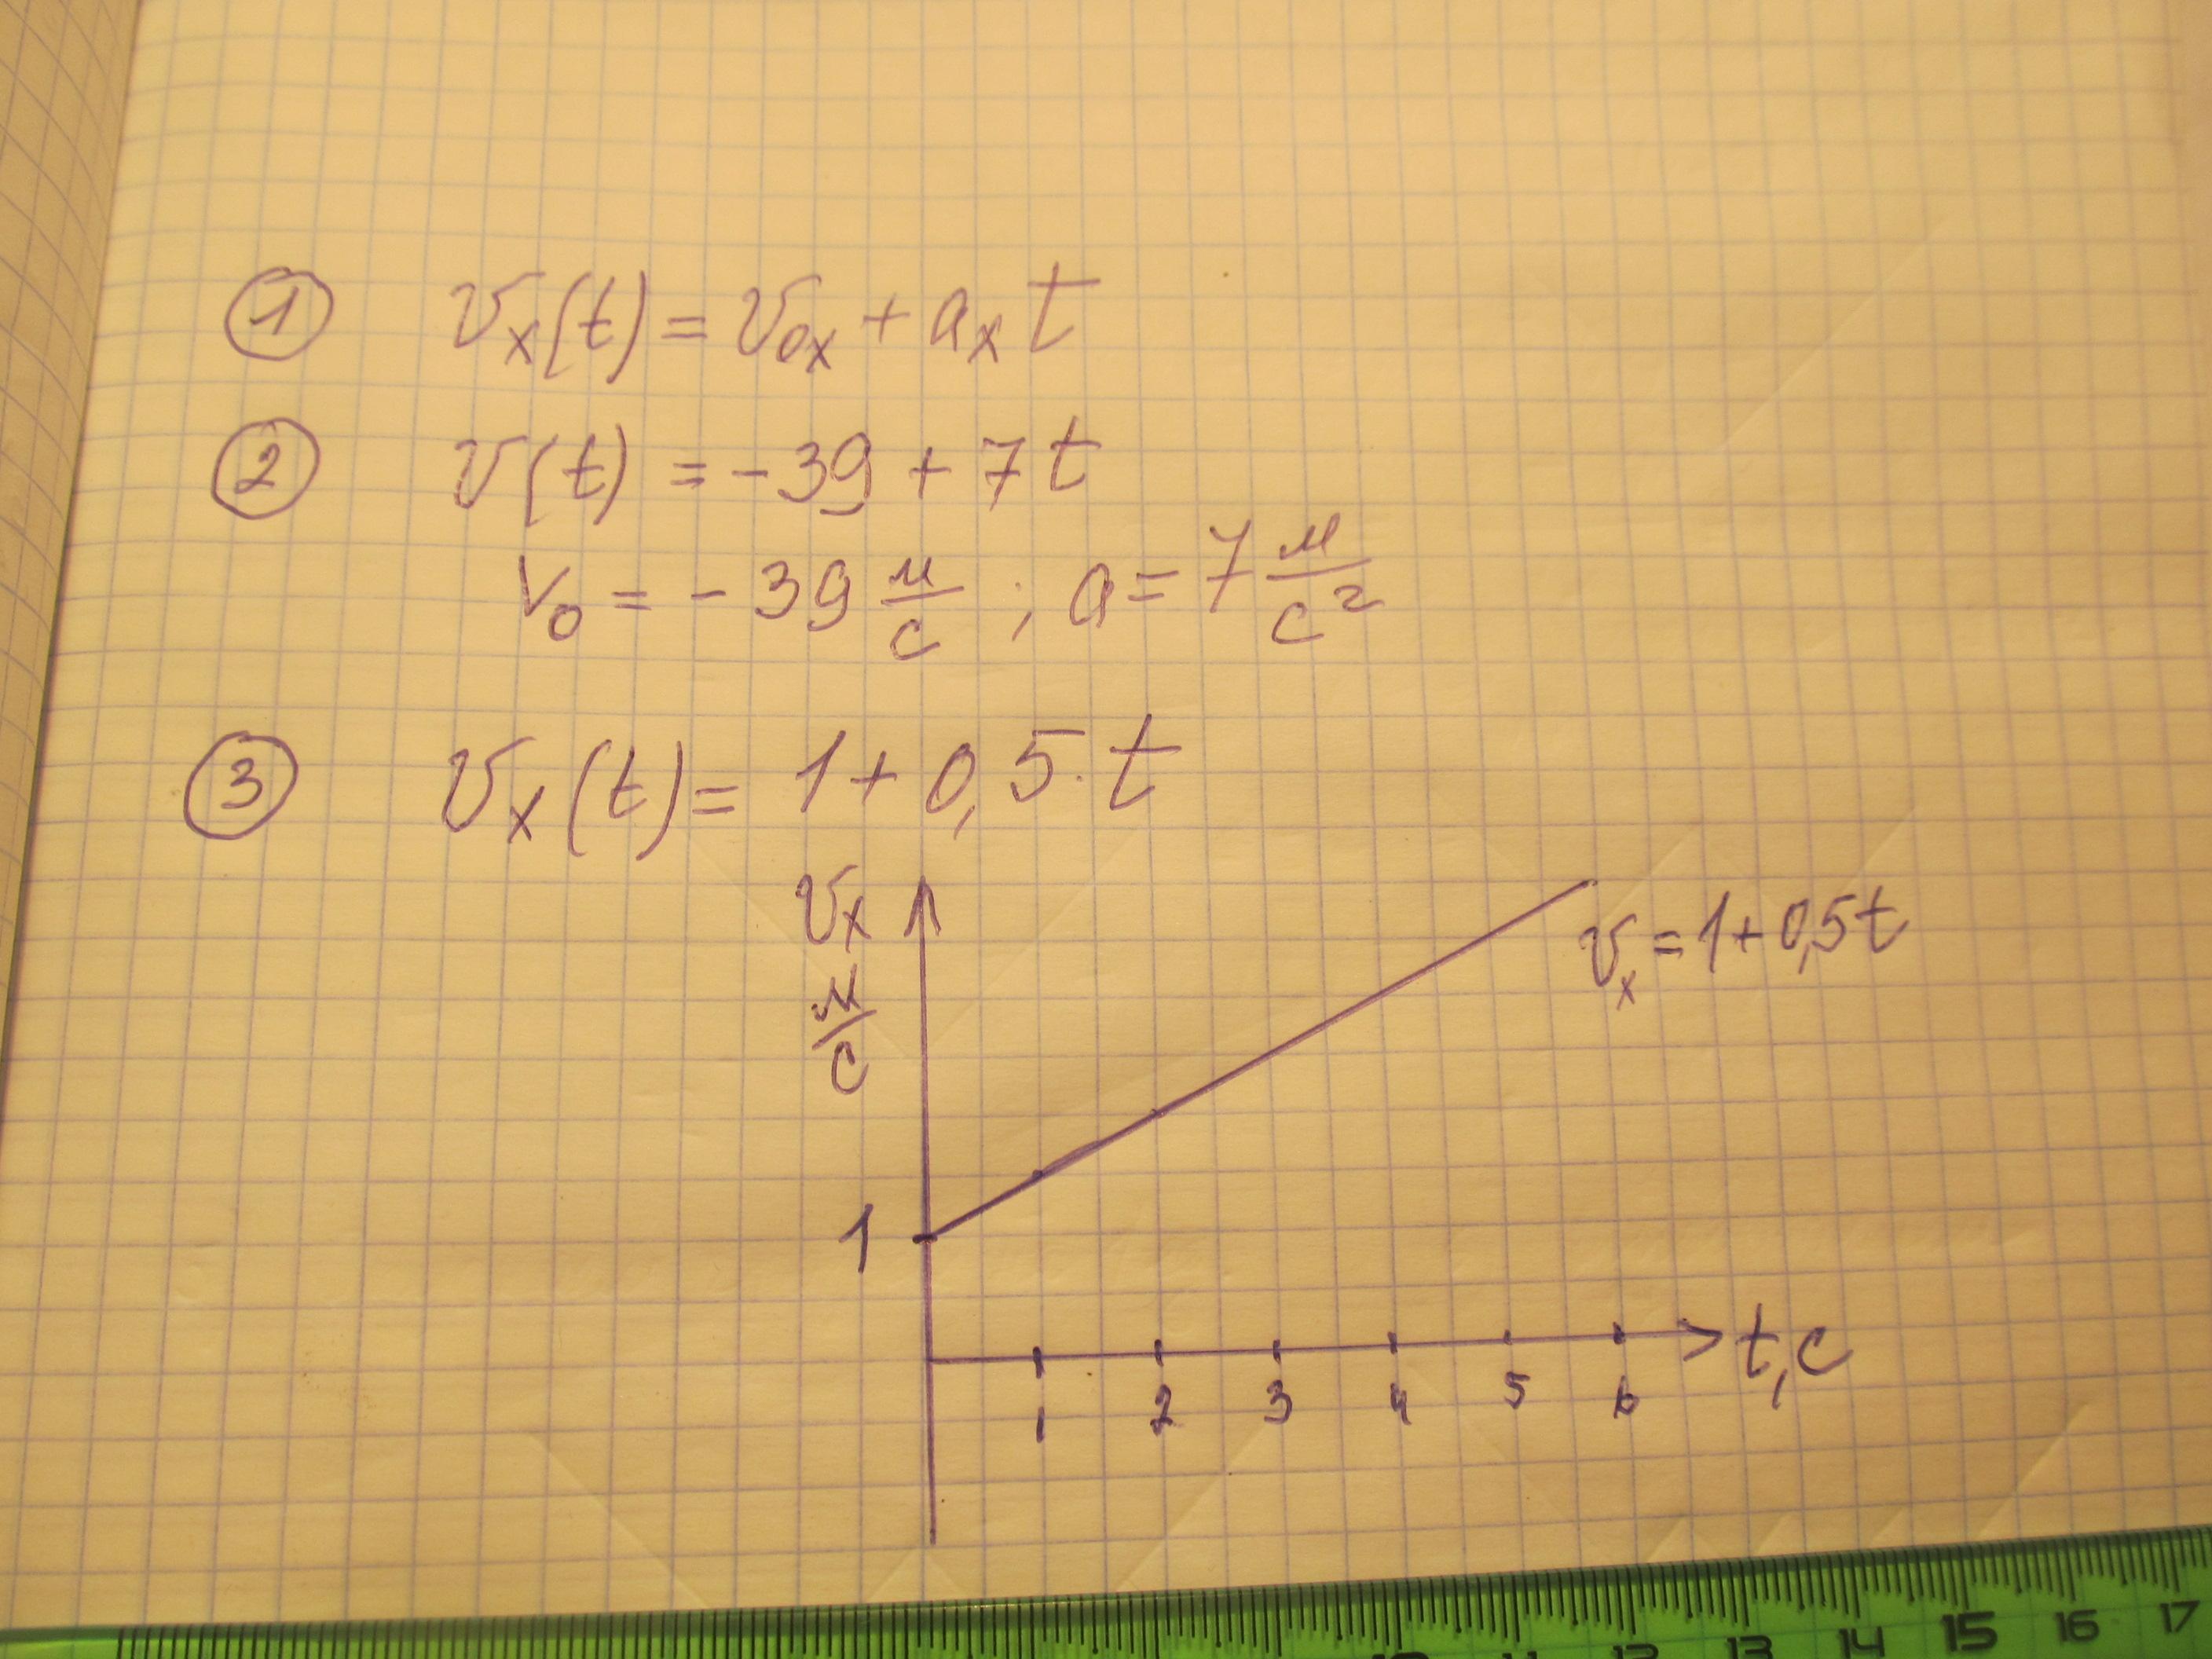 ① v_x(t) = v_0x + a_x t
② v(t) = -39 + 7t
v_0 = -39 м/с ; a = 7 м/с²
③ v_x(t) = 1 + 0,5·t
v_x м/с
v_x = 1 + 0,5t
1
t,с
1 2 3 4 5 6
13 14 15 16 17